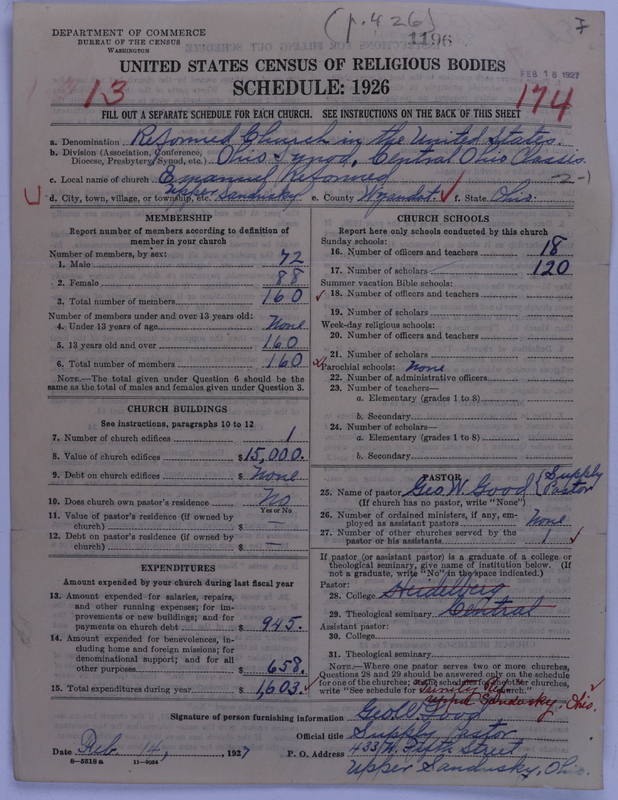 (p. 426) 7
1196
DEPARTMENT OF COMMERCE
BUREAU OF THE CENSUS
WASHINGTON
UNITED STATES CENSUS OF RELIGIOUS BODIES
FEB 18 1927
SCHEDULE: 1926
13 174
FILL OUT A SEPARATE SCHEDULE FOR EACH CHURCH. SEE INSTRUCTIONS ON THE BACK OF THIS SHEET
a. Denomination Reformed Church in the United States.
b. Division (Association, Conference, Diocese, Presbytery, Synod, etc.) Ohio Synod, Central Ohio Classis.
c. Local name of church Emanuel Reformed 2-1
d. City, town, village, or township, etc. Upper Sandusky e. County Wyandot. f. State Ohio.
MEMBERSHIP
Report number of members according to definition of
member in your church
Number of members, by sex:
1. Male 72
2. Female 88
3. Total number of members 160
Number of members under and over 13 years old:
4. Under 13 years of age None
5. 13 years old and over 160
6. Total number of members 160
NOTE.—The total given under Question 6 should be the
same as the total of males and females given under Question 3.
CHURCH BUILDINGS
See instructions, paragraphs 10 to 12
7. Number of church edifices 1
8. Value of church edifices $15,000.
9. Debt on church edifices $ None
10. Does church own pastor's residence No
Yes or No
11. Value of pastor's residence (if owned by
church) $ —
12. Debt on pastor's residence (if owned by
church) $ —
EXPENDITURES
Amount expended by your church during last fiscal year
13. Amount expended for salaries, repairs,
and other running expenses; for im-
provements or new buildings; and for
payments on church debt $ 945.
14. Amount expended for benevolences, in-
cluding home and foreign missions; for
denominational support; and for all
other purposes $ 658.
15. Total expenditures during year $ 1,603.
CHURCH SCHOOLS
Report here only schools conducted by this church
Sunday schools:
16. Number of officers and teachers 18
17. Number of scholars 120
Summer vacation Bible schools:
18. Number of officers and teachers
19. Number of scholars
Week-day religious schools:
20. Number of officers and teachers
21. Number of scholars
Parochial schools: None
22. Number of administrative officers
23. Number of teachers—
a. Elementary (grades 1 to 8)
b. Secondary
24. Number of scholars—
a. Elementary (grades 1 to 8)
b. Secondary
PASTOR
25. Name of pastor Geo. W. Good { Supply Pastor
(If church has no pastor, write "None")
26. Number of ordained ministers, if any, em-
ployed as assistant pastors None
27. Number of other churches served by the
pastor or his assistants 1
If pastor (or assistant pastor) is a graduate of a college or
theological seminary, give name of institution below. (If
not a graduate, write "No" in the space indicated.)
Pastor:
28. College Heidelberg
29. Theological seminary Central
Assistant pastor:
30. College
31. Theological seminary
NOTE.—Where one pastor serves two or more churches,
Questions 28 and 29 should be answered only on the schedule
for one of the churches; on the schedules for the other churches,
write "See schedule for Trinity Ref. church."
Upper Sandusky, Ohio.
Signature of person furnishing information Geo. W. Good
Official title Supply Pastor
Date Feb. 14, 1927 P. O. Address 433 N. Fifth Street
8—5518 a 11—9024 Upper Sandusky, Ohio.